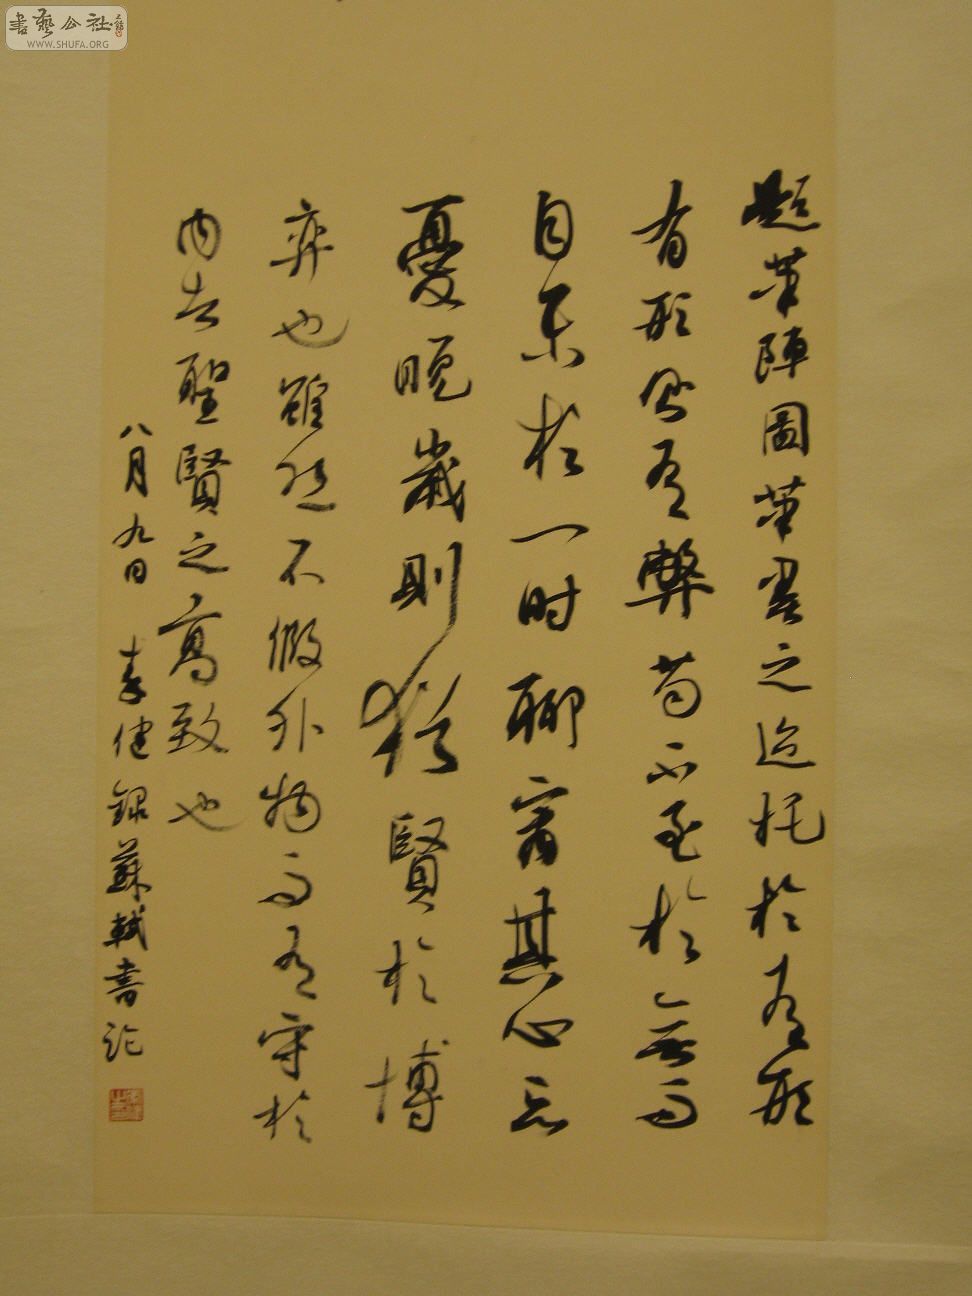 書藝公社
WWW.SHUFA.ORG
題筆陣圖筆墨之迹托於有形
有形則有弊苟不至於無而
自樂於一时聊寓其心忘
憂晚歲則猶賢於博
弈也雖然不假外物而有守於
内者聖賢之高致也
八月九日 健錄蘇軾書論